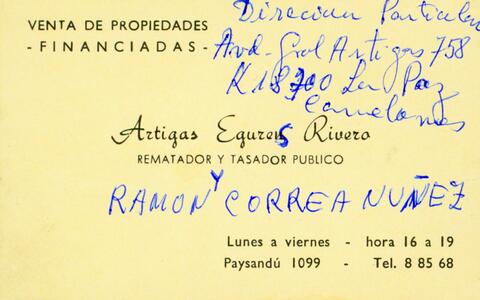 VENTA DE PROPIEDADES
- FINANCIADAS -
Direcion Particular
Avd-Gral Artigas 758
K 18300 La Paz
Canelones
Artigas Egurens Rivero
REMATADOR Y TASADOR PUBLICO
Y
RAMON CORREA NUÑEZ
Lunes a viernes - hora 16 a 19
Paysandú 1099 - Tel. 8 85 68